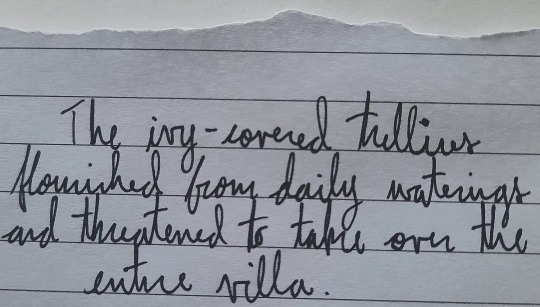 The ivy-covered trellises
flourished from daily waterings
and threatened to take over the
entire villa.